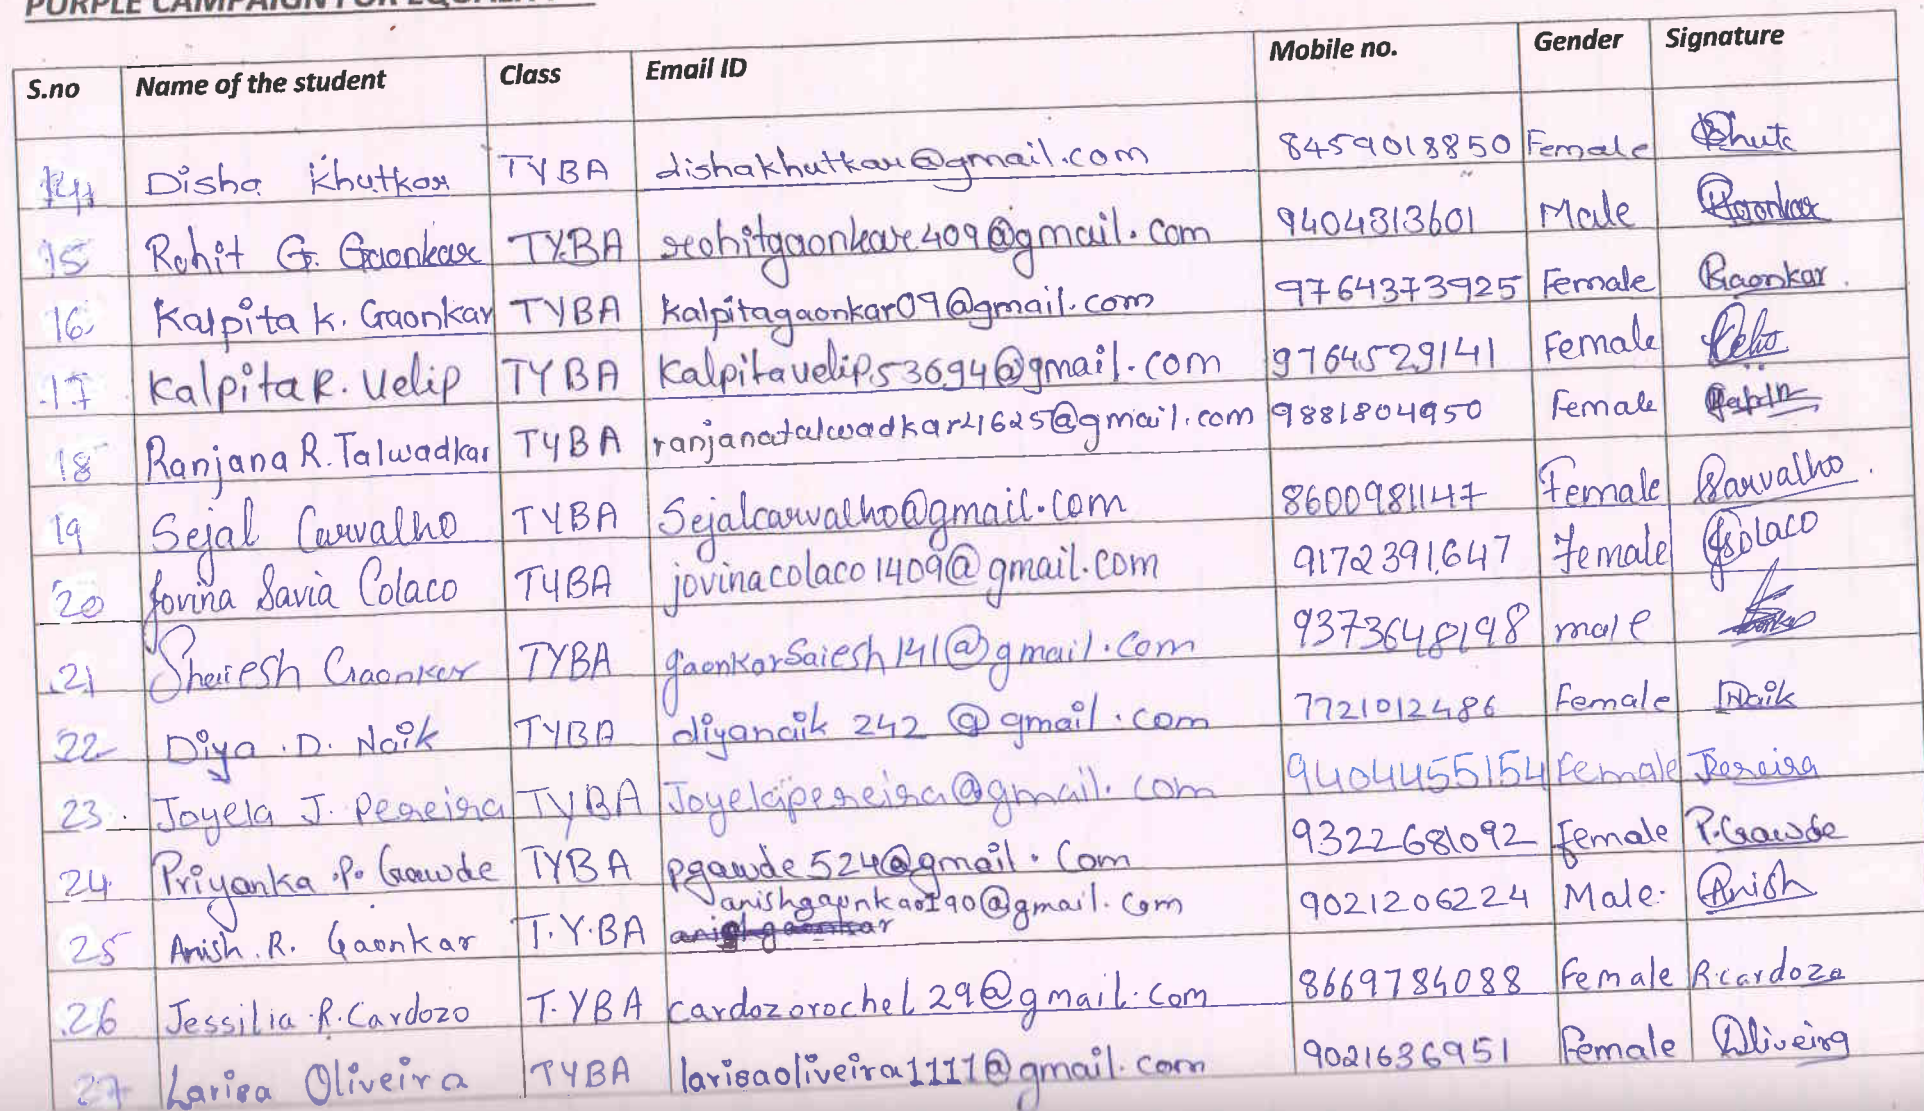 PURPLE CAMPAIGN FOR EQUALITY
S.no Name of the student Class Email ID Mobile no. Gender Signature
14 Disha Khutkar TYBA dishakhutkar@gmail.com 8459018850 Female
15 Rohit G. Gaonkar TYBA rohitgaonkar409@gmail.com 9404313601 Male Gaonkar
16 Kalpita K. Gaonkar TYBA kalpitagaonkar09@gmail.com 9764373925 Female Gaonkar
17 Kalpita R. Velip TYBA Kalpitavelip53694@gmail.com 9764529141 Female
18 Ranjana R. Talwadkar TYBA ranjanatalwadkar41625@gmail.com 9881804950 Female
19 Sejal Carvalho TYBA Sejalcarvalho@gmail.com 8600981147 Female Carvalho
20 Jovina Savia Colaco TYBA jovinacolaco1409@gmail.com 9172391647 Female JSColaco
21 Gaonkar TYBA gaonkarSaiesh141@gmail.com 9373648198 male
22 Diya .D. Naik TYBA diyanaik242@gmail.com 7721012486 Female Naik
23. Joyela J. Pereira TYBA 9404455154 Female Pereira
24. Priyanka .P. Gawde TYBA pgawde524@gmail.com 9322681092 Female P.Gawde
25 Anish .R. Gaonkar T.Y.BA anishgaonkar190@gmail.com 9021206224 Male. Anish
26 Jessilia .R. Cardozo T.YBA cardozorochel29@gmail.com 8669784088 Female R.cardozo
27 Larisa Oliveira TYBA larisaoliveira1111@gmail.com 9021636951 Female Oliveira